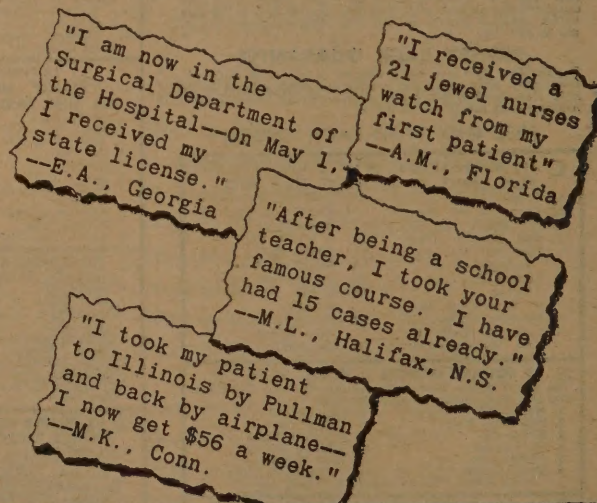 "I am now in the
Surgical Department of
the Hospital--On May 1,
I received my
state license."
--E.A., Georgia
"I received a
21 jewel nurses
watch from my
first patient"
--A.M., Florida
"After being a school
teacher, I took your
famous course.  I have
had 15 cases already."
--M.L., Halifax, N.S.
"I took my patient
to Illinois by Pullman
and back by airplane--
I now get $56 a week."
--M.K., Conn.